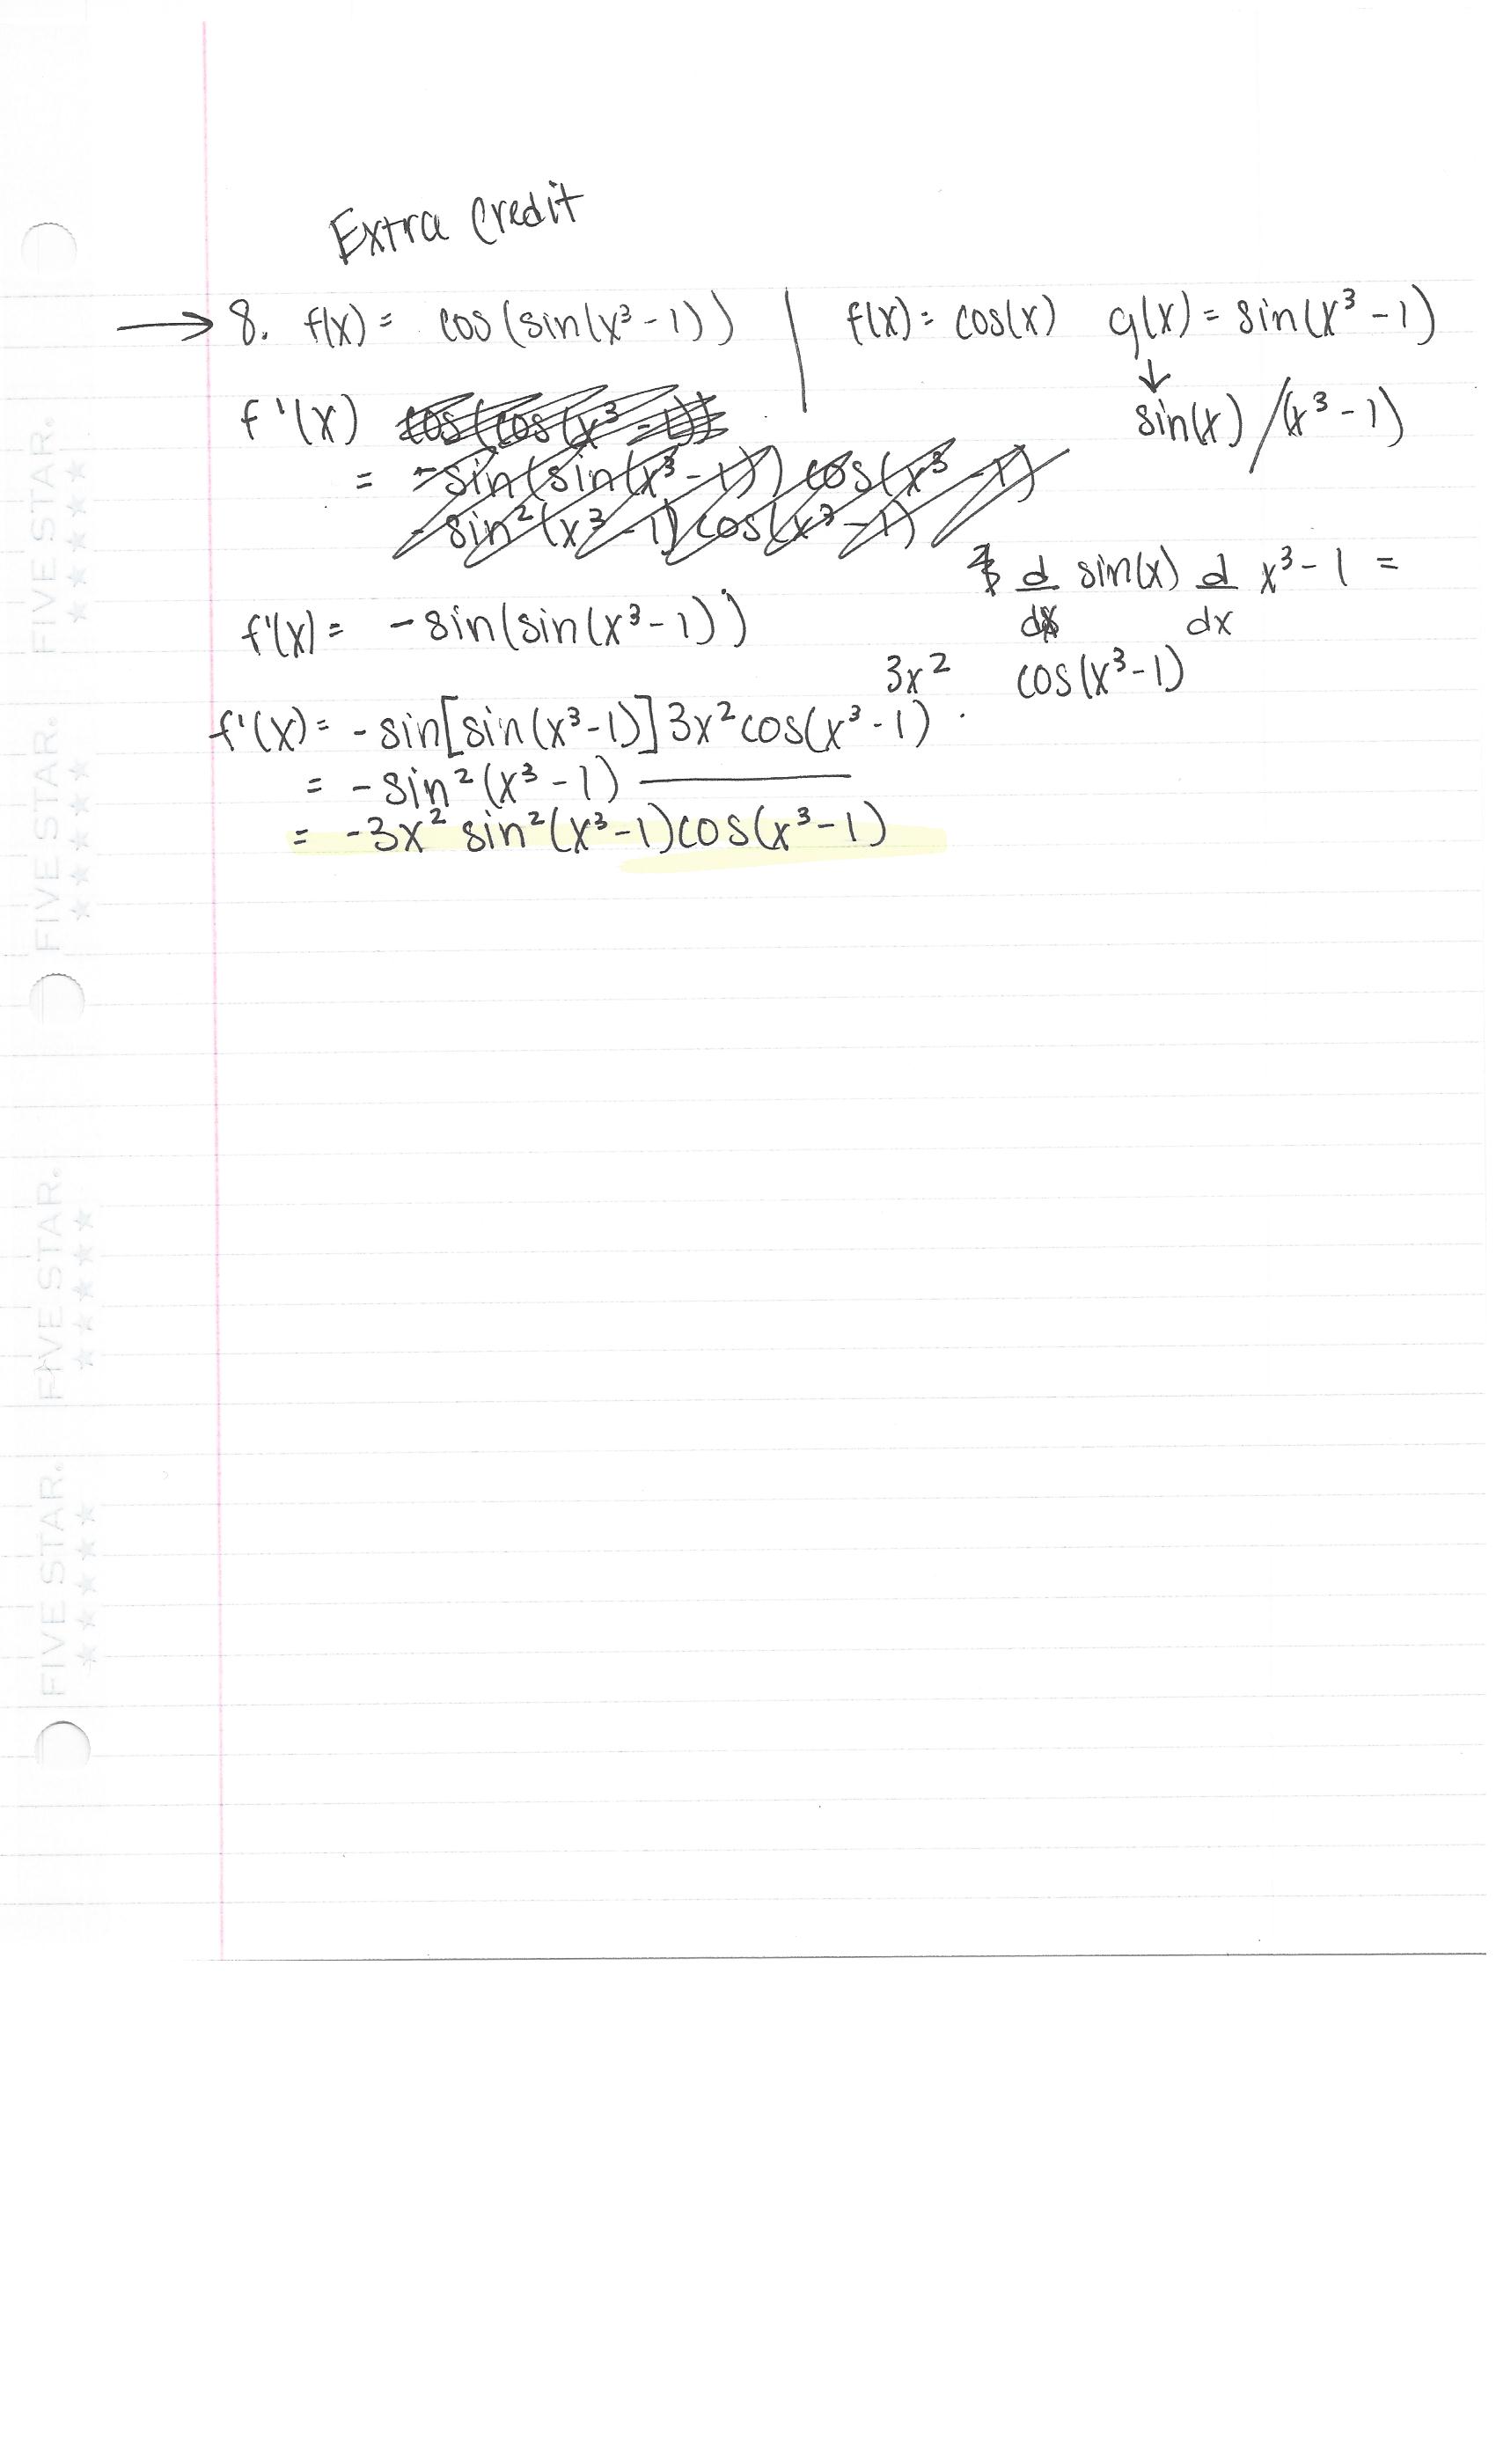 Extra Credit
→ 8. f(x) = cos(sin(x³ - 1)) | f(x) = cos(x) g(x) = sin(x³ - 1)
↓
f'(x) cos(cos(x³ - 1)) sin(x) / (x³ - 1)
= -sin(sin(x³ - 1)) cos(x³ - 1)
-sin²(x³ - 1) cos(x³ - 1)
d/dx sin(x) d/dx x³ - 1 =
f'(x) = -sin(sin(x³ - 1))
3x² cos(x³ - 1)
f'(x) = -sin[sin(x³ - 1)] 3x² cos(x³ - 1) ·
= -sin²(x³ - 1) ———
= -3x² sin²(x³ - 1)cos(x³ - 1)
FIVE STAR.
★★★★★
FIVE STAR.
★★★★★
FIVE STAR.
★★★★★
FIVE STAR.
★★★★★